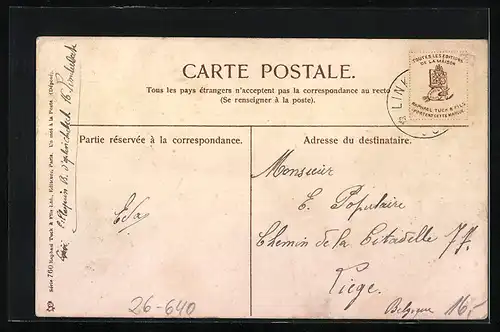 CARTE POSTALE.
Tous les pays étrangers n'acceptent pas la correspondance au recto
(Se renseigner à la poste).
TOUTES LES EDITIONS
DE LA MAISON
RAPHAEL TUCK & FILS
PORTENT CETTE MARQUE
LIN
Partie réservée à la correspondance.
Adresse du destinataire.
Monsieur
E. Populaire
Chemin de la Citadelle 77.
Liége.
Belgique
26-640
16,-
Série 760 Raphael Tuck & Fils Ltd., Editeurs, Paris. Un mot à la Poste. (Déposé).